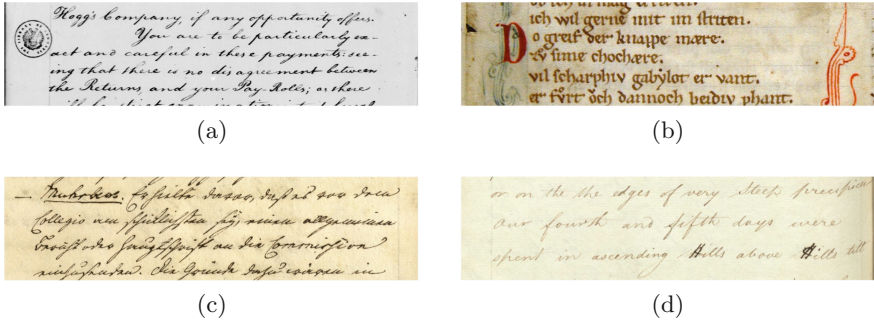 Hogg's Company, if any opportunity offers.
You are to be particularly ex-
act and careful in these payments: see-
ing that there is no disagreement between
the Returns, and your Pay-Rolls; as there
(a)
ich wil gerne mit im striten.
Do greif der knappe mære.
zv sime chochære.
vil scharphiv gabylot er vant.
er fv̊rt ŏch dannoch beidiv phant.
(b)
dafür, daß es vor dem
Collegio am
oder Hauptschrift an die Commission
einzusenden. Die Gründe dazu wären in
(c)
or on the the edges of very Steep precipices
our fourth and fifth days were
spent in ascending Hills above Hills till
(d)